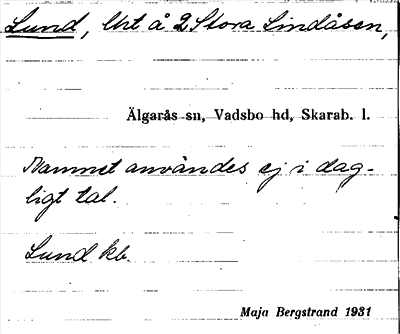 Lund, lht å 2 Stora Lindåsen,
Älgarås sn, Vadsbo hd, Skarab. l.
Namnet användes ej i dag-
ligt tal.
Lund kb.
Maja Bergstrand 1931